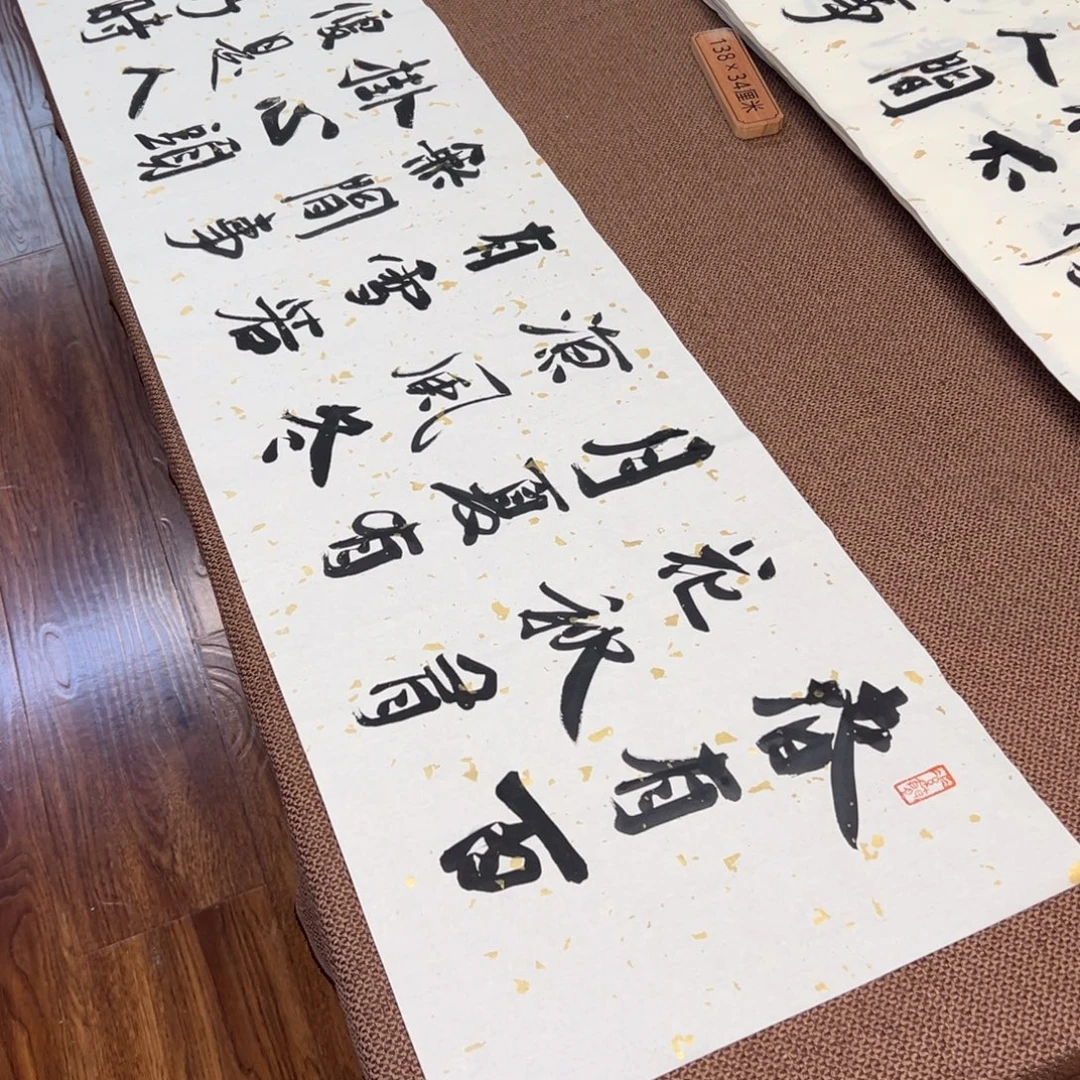 春有百
花秋有
月夏有
凉風冬
有雪若
無閒事
掛心頭
便是人
時
138×34厘米
不
人間
事